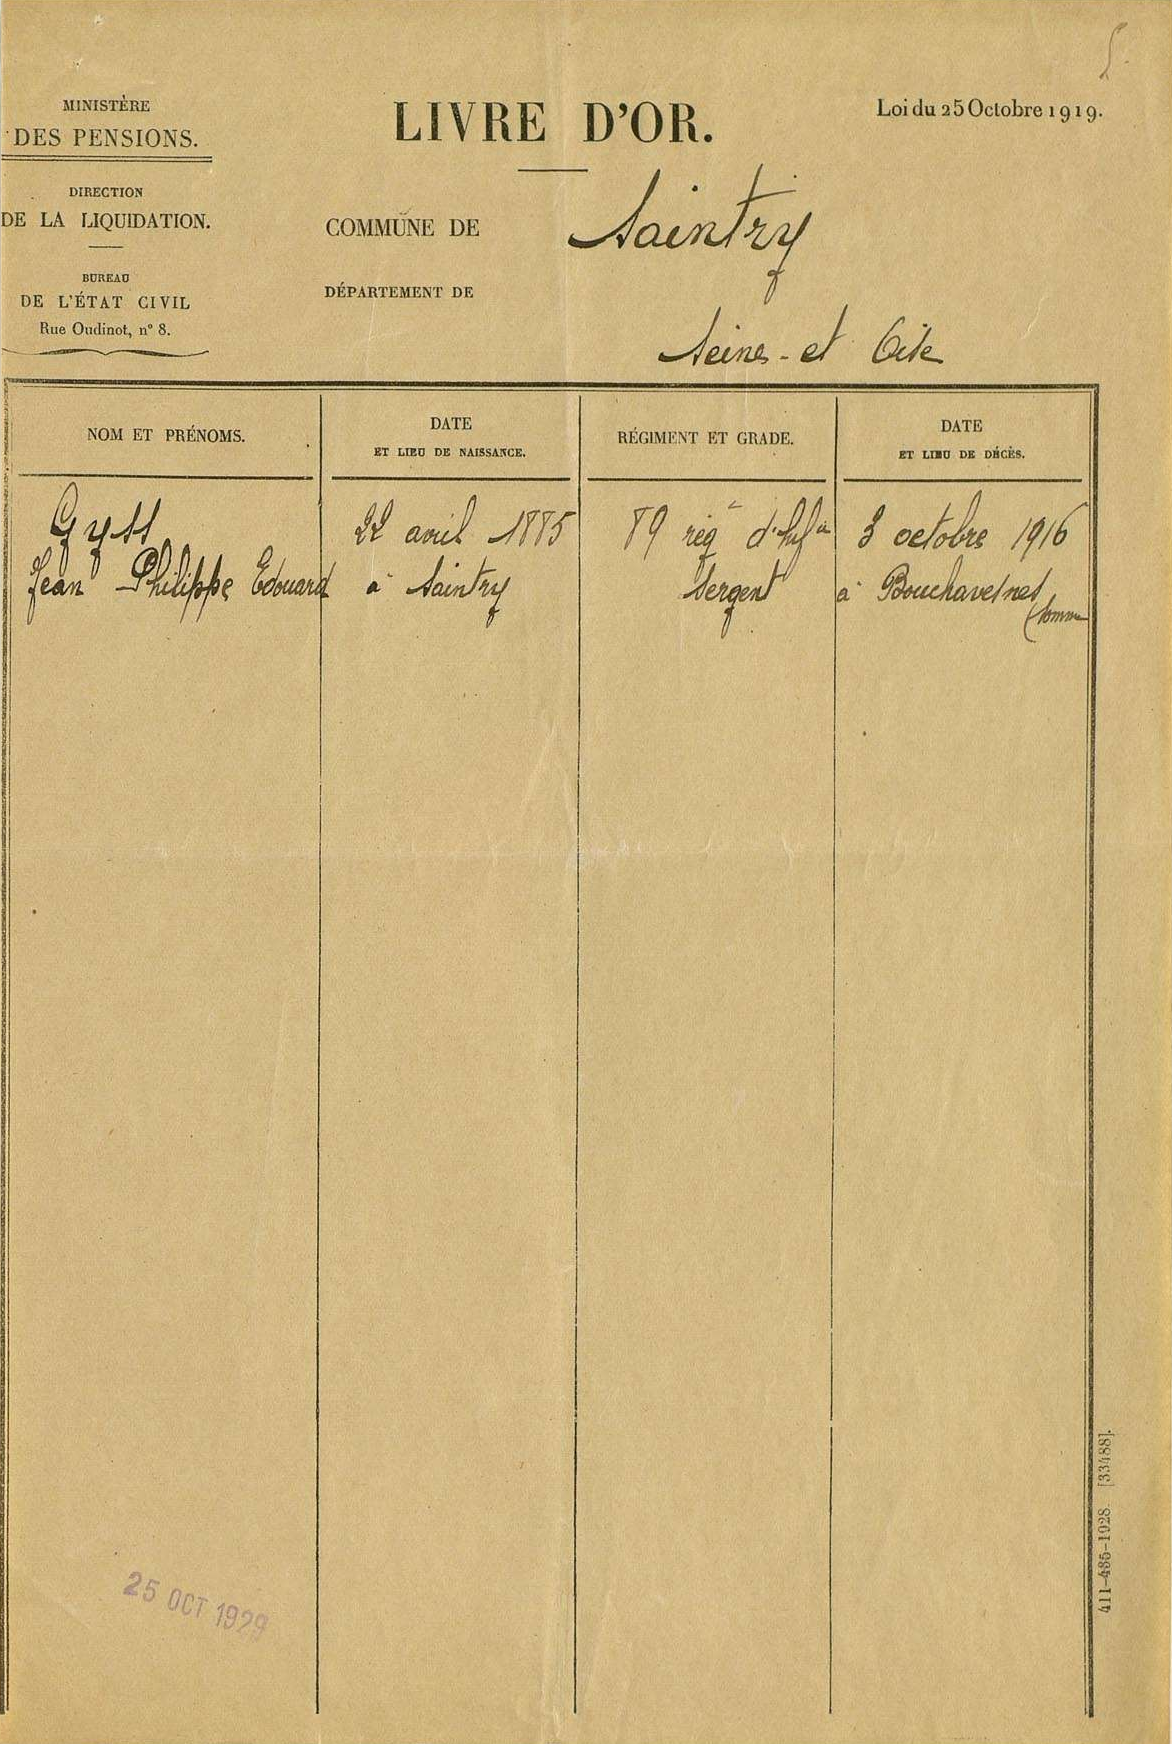 MINISTÈRE
DES PENSIONS.
DIRECTION
DE LA LIQUIDATION.
BUREAU
DE L'ÉTAT CIVIL
Rue Oudinot, n° 8.
LIVRE D'OR.
Loi du 25 Octobre 1919.
COMMUNE DE Saintry
DÉPARTEMENT DE
Seine-et Oise
NOM ET PRÉNOMS.
DATE
ET LIEU DE NAISSANCE.
RÉGIMENT ET GRADE.
DATE
ET LIEU DE DÉCÈS.
Gyss
Jean Philippe Edouard
22 avril 1885
à Saintry
89 reg d'Inf
Sergent
3 octobre 1916
à Bouchavesnes
(Somme
25 OCT 1929
411-485-1928. [33488].